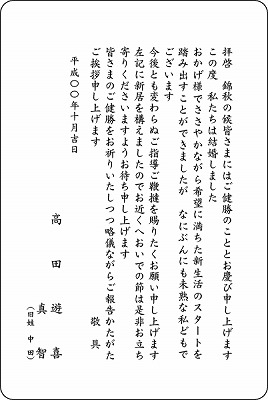 拝啓　錦秋の候皆さまにはご健勝のこととお慶び申し上げます
この度　私たちは結婚しました
おかげ様でささやかながら希望に満ちた新生活のスタートを
踏み出すことができましたが　なにぶんにも未熟な私どもで
ございます
今後とも変わらぬご指導ご鞭撻を賜りたくお願い申し上げます
左記に新居を構えましたのでお近くへおいでの節は是非お立ち
寄りくださいますようお待ち申し上げます
皆さまのご健勝をお祈りいたしつつ略儀ながらご報告かたがた
ご挨拶申し上げます
敬具
平成〇〇年十月吉日
高田　遊喜
真智
（旧姓　中田）